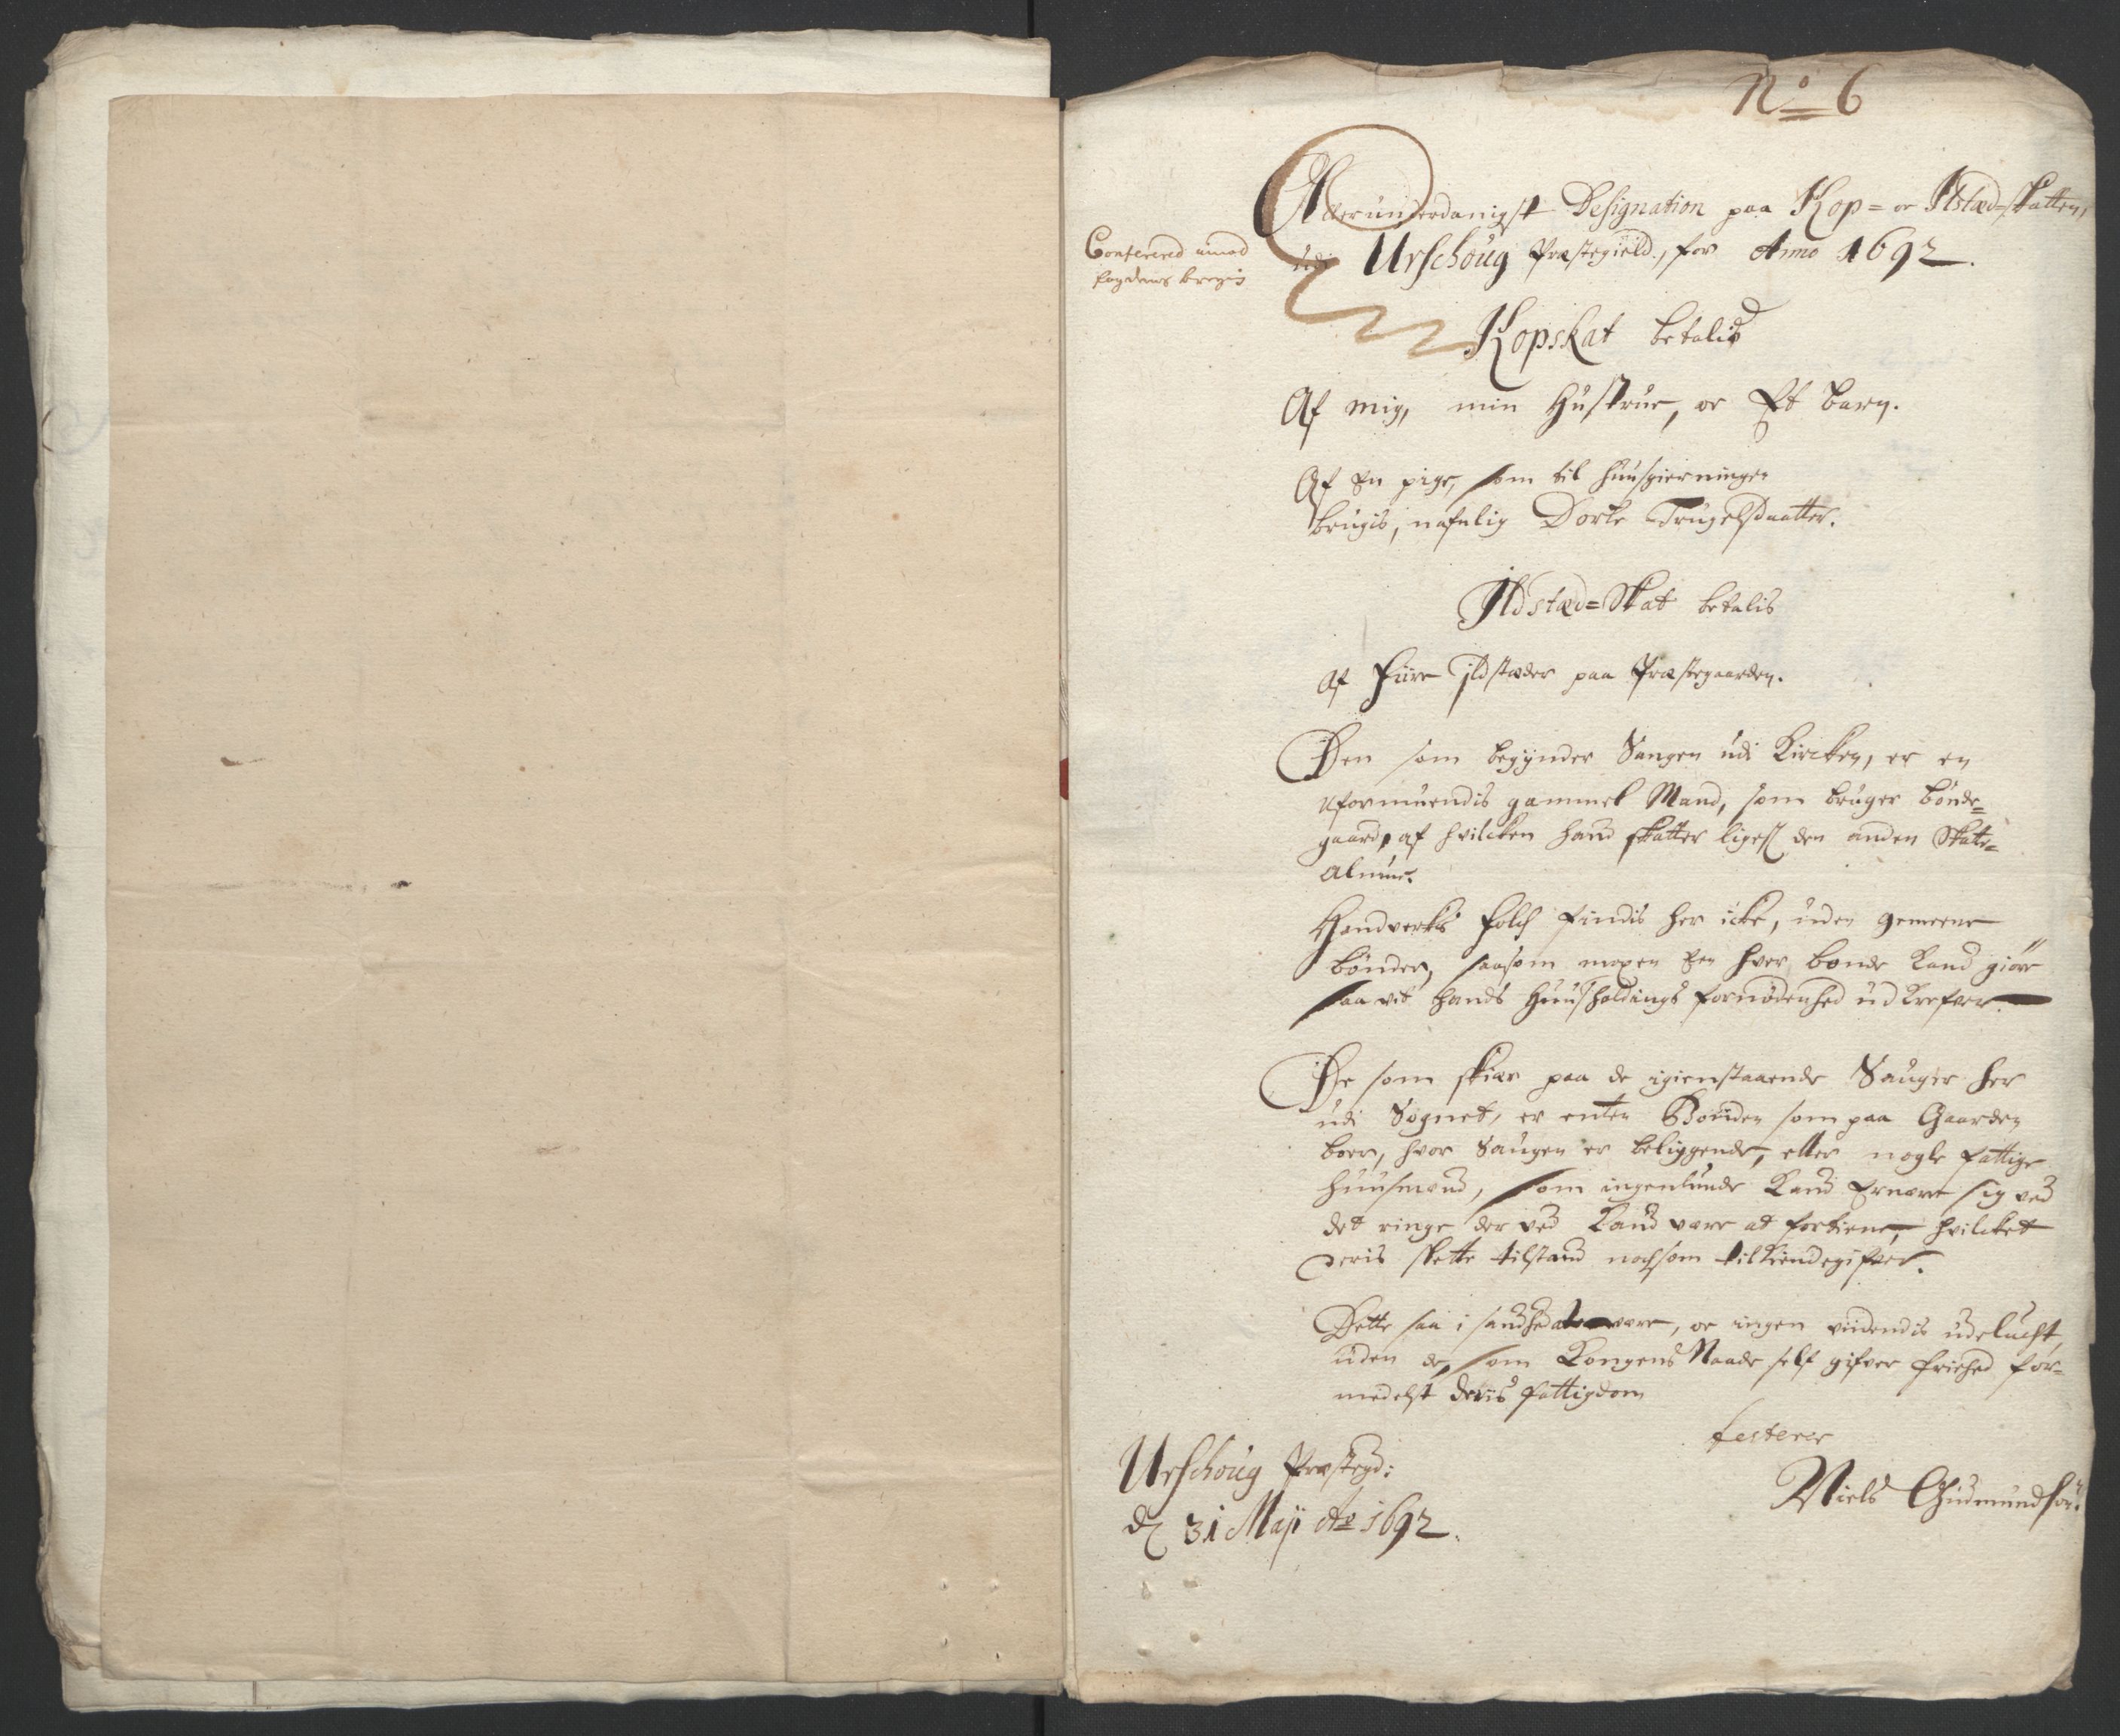 No 6
Allerunderdanigst Designation paa Kop- oc Ilstæd-skatten,
udi Urschoug Præstegield, for Anno 1692.
Conferered imod
fogdens
Kopskat betalis
Af mig, min Hustrue, oc Et barn.
Af En pige, som til huusgierningen
brugis, nafnlig Dorte Trugelsdaatter.
Ildstæd-Skat betalis
Af Fiire Ildstæder paa Præstegaarden.
Den som begynder Sangen udi Kircken, er en
uformuendis gammel Mand, som bruger bønde-
gaard, af hvilcken hand skatter ligesom den anden Skatte-
Almue.
Handverks folch findis her icke, uden gemeene
bønder, saasom nogen Een hver bonde kand giøre
saa vit hands Huusholdings fornødenhed udkrefver.
De som skiær paa de igienstaaende Sauger her
udi Sognet, er enten Bonden som paa Gaarden
boer, hvor Saugen er beliggende, eller nogle fattige
huusmænd, som ingenlunde kand Ernære sig ved
det ringe der ved kand være at fortiene, hvilcket
deris slette tilstand nochsom tilkiendegifver.
Dette saa i sandhed at være, oc ingen videndis udelucht,
uden de, som Kongens Naade self gifver friehed for-
medelst deris fattigdom
Testerer
Urschoug Præstegd:
d 31 Maji Ao 1692.
Niels Gudmundsøn.